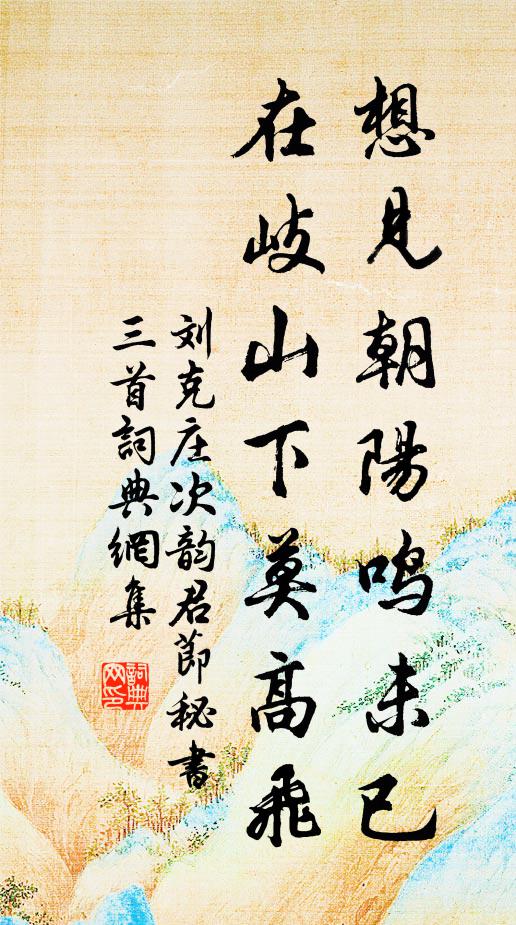 想見朝陽鳴未已
在岐山下莫高飛
刘克庄次韵君節秘書
三首詞典網集
詞典网印